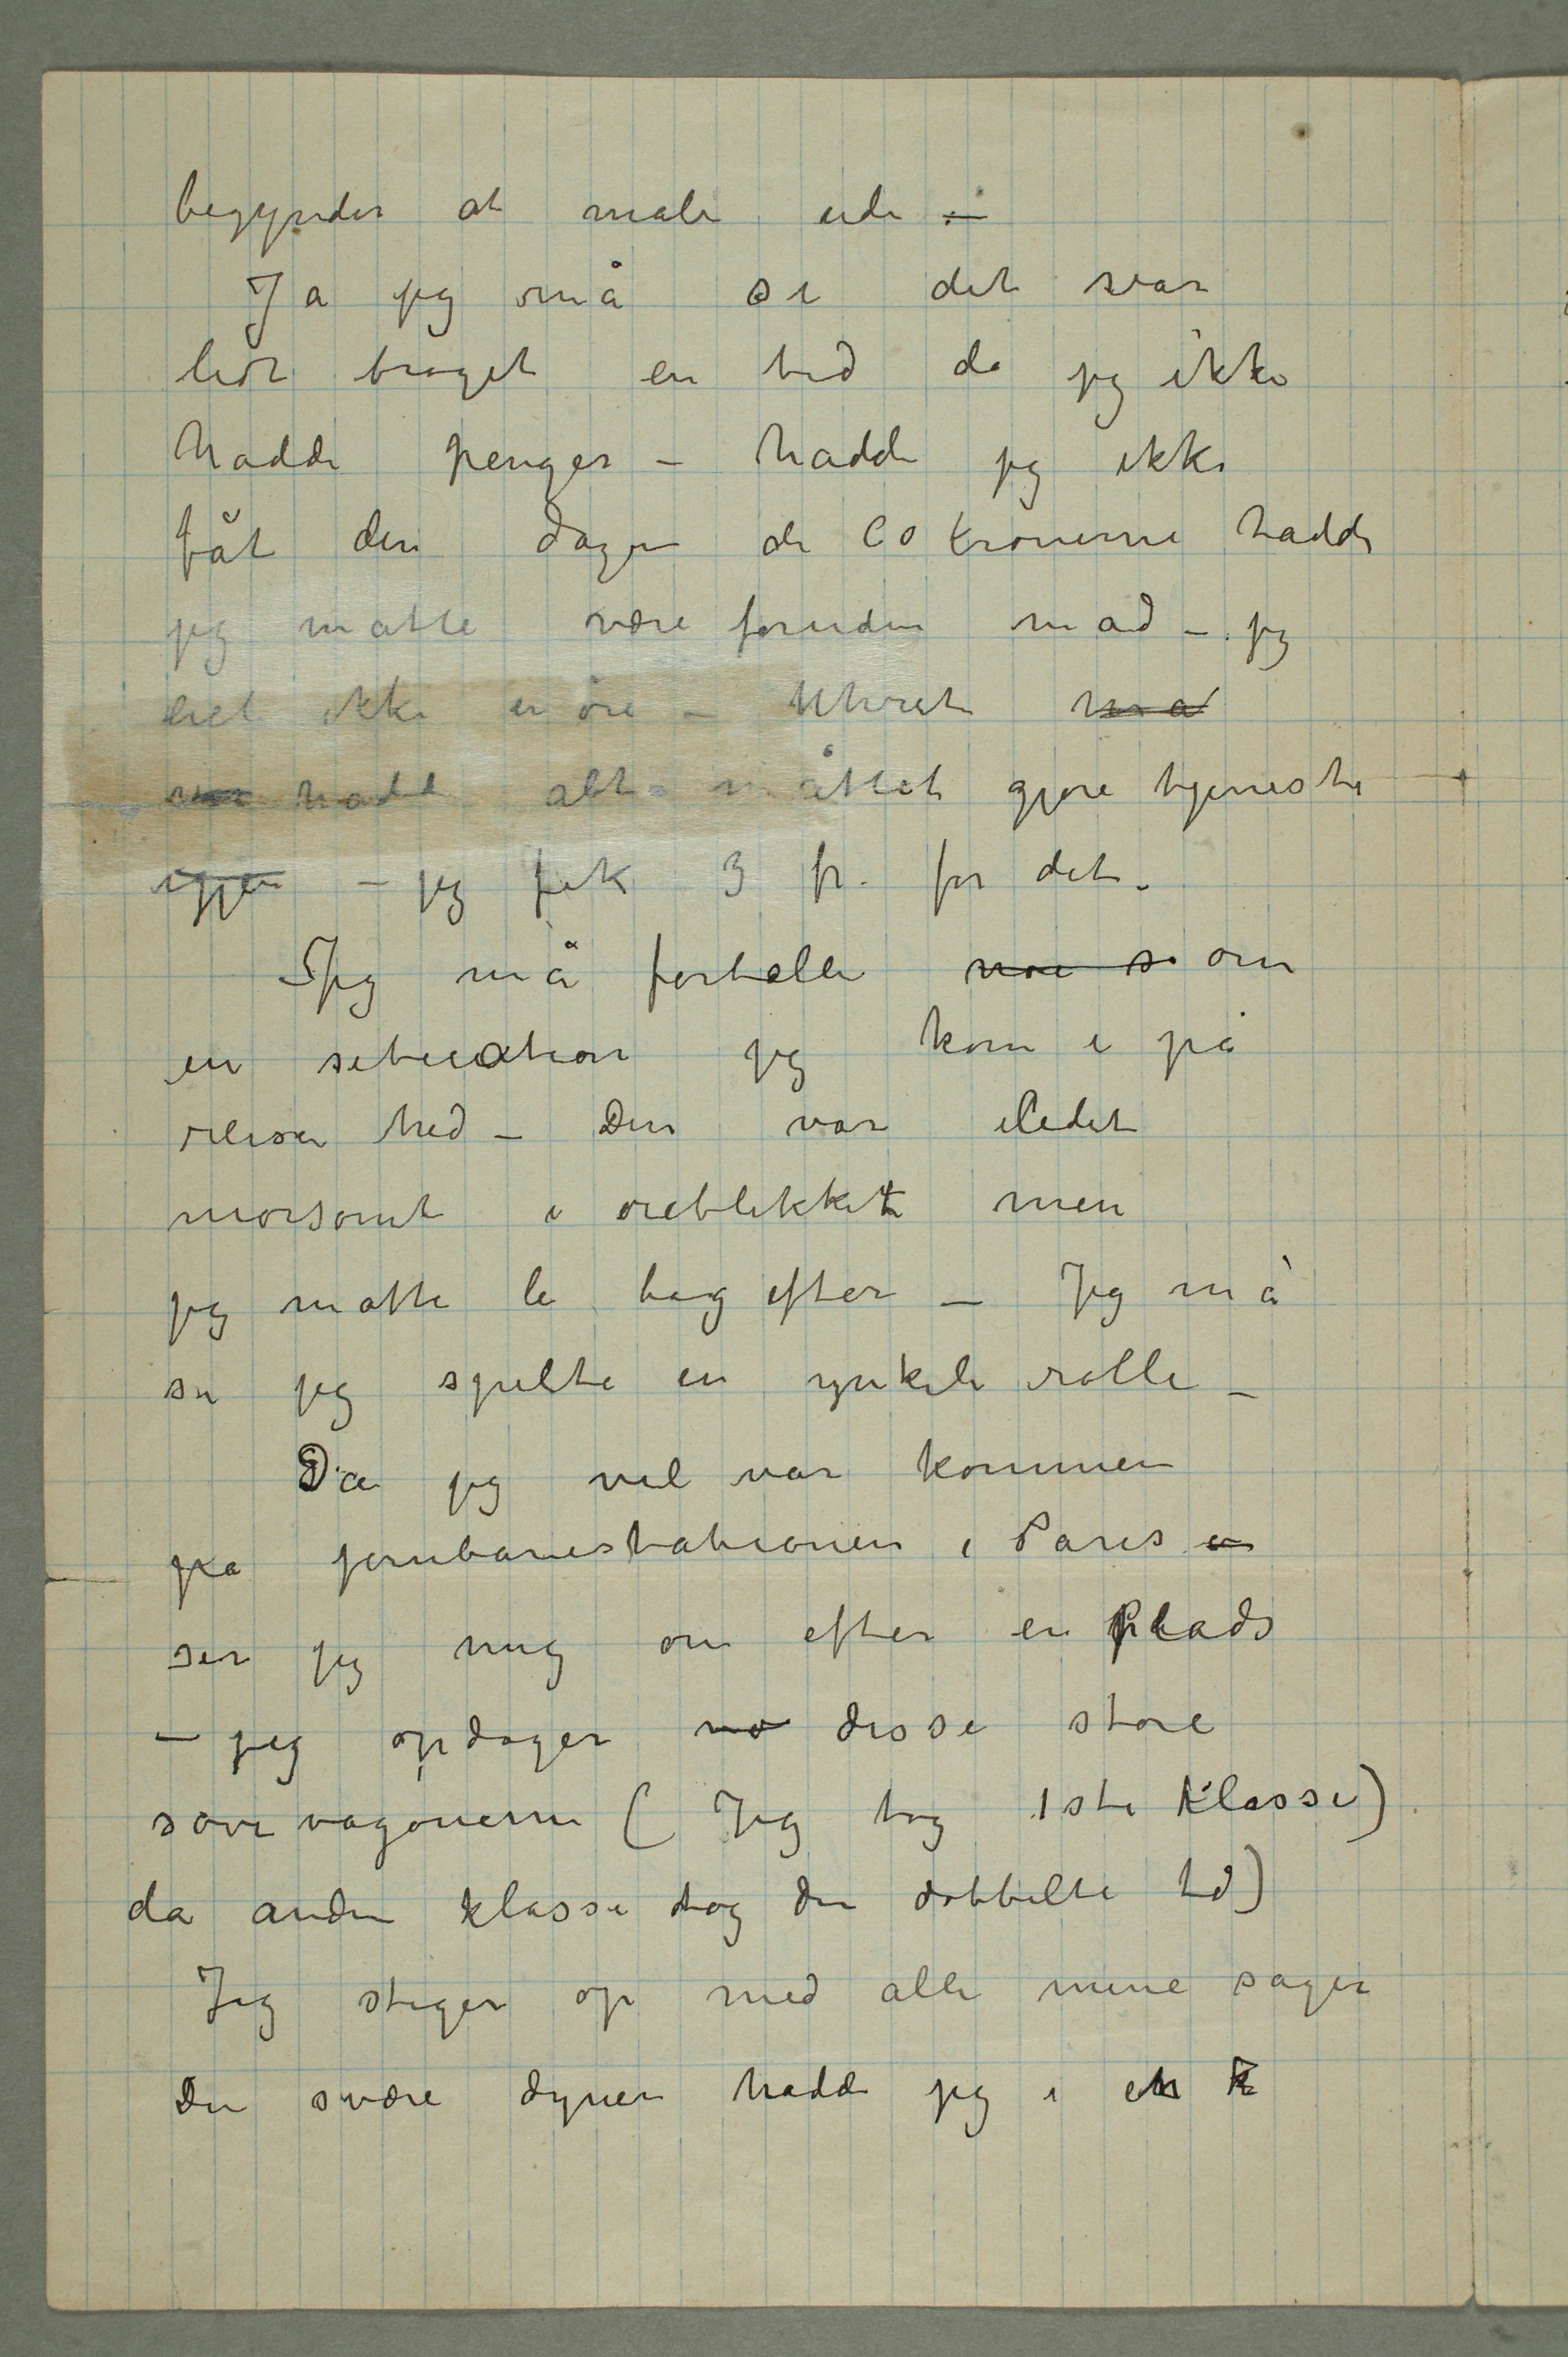 begynder at male ude –
Ja jeg må si det svar
lidt traget en tid da jeg ikke
hadde penger – hadde jeg ikke
fåt den dagen de 60 kronerne hadde
jeg matte være foruden mad – jeg
eiet ikke en øre – Uhret ma
var hadde alt måttet gjøre tjeneste
igjen – jeg fik 3 fr. for det.
Jeg må fortelle noe s om
en situation jeg kom i på
reisen hid – Den var
morsomt i øieblikket men
jeg matte le bag efter – Jeg må
si jeg spilte en ynkeli rolle –
Da jeg vel var kommen
pa jernbanestationen i Paris
ser jeg mig om efter en Plads
– jeg opdager no disse store
sove vagonerne ( Jeg tog 1ste Klasse)
da anden klasse tog den dobbelte tid)
Jeg stiger op med alle mine sager
Den svære dynen hadde jeg i en k